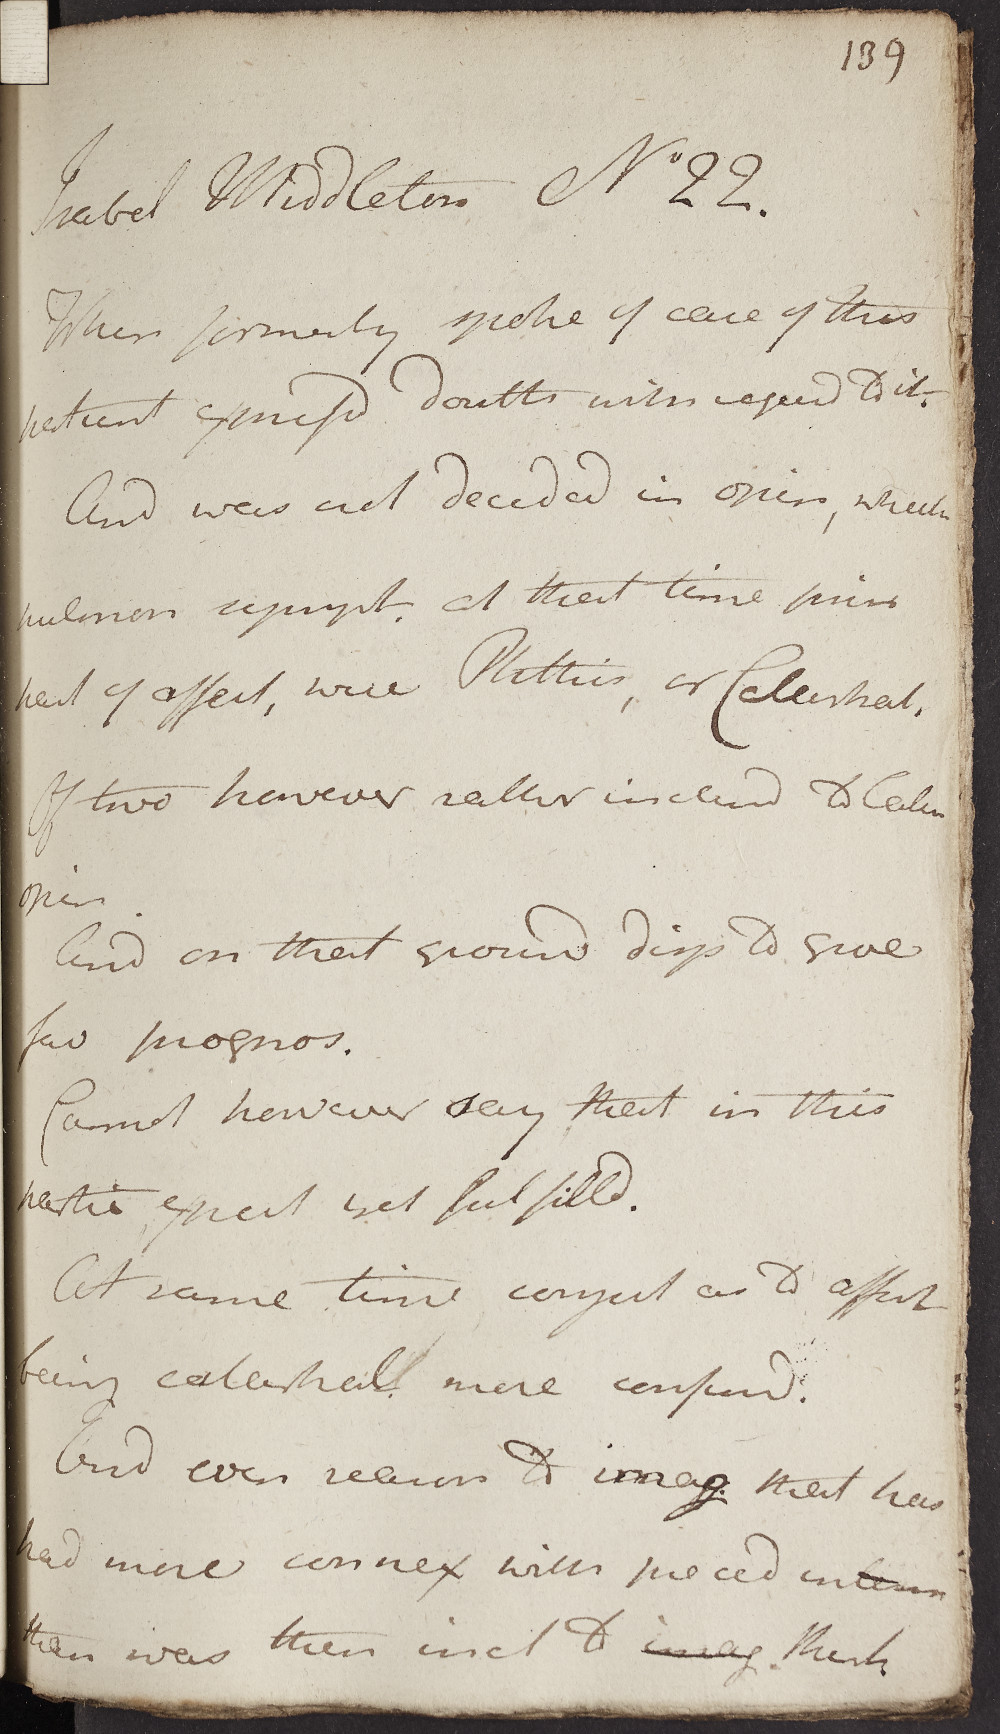 139
Isabel Middleton No 22.
When formerly spoke of case of this
patient expressd doubts with regard to it.
And was not decided in opin, whether
pulmon sympt. at that time prin
part of affect, were Phthisis, or Catarrhal.
Of two however rather inclind to Catar
opin.
And on that ground disp to give
fav prognos.
Cannot however say that in this
partic expect yet fulfilld.
At same time conject as to affect
being catarrhal more confirmd.
And even reason to imag. that has
had more connex with preced interm
than was then incl to imag. think